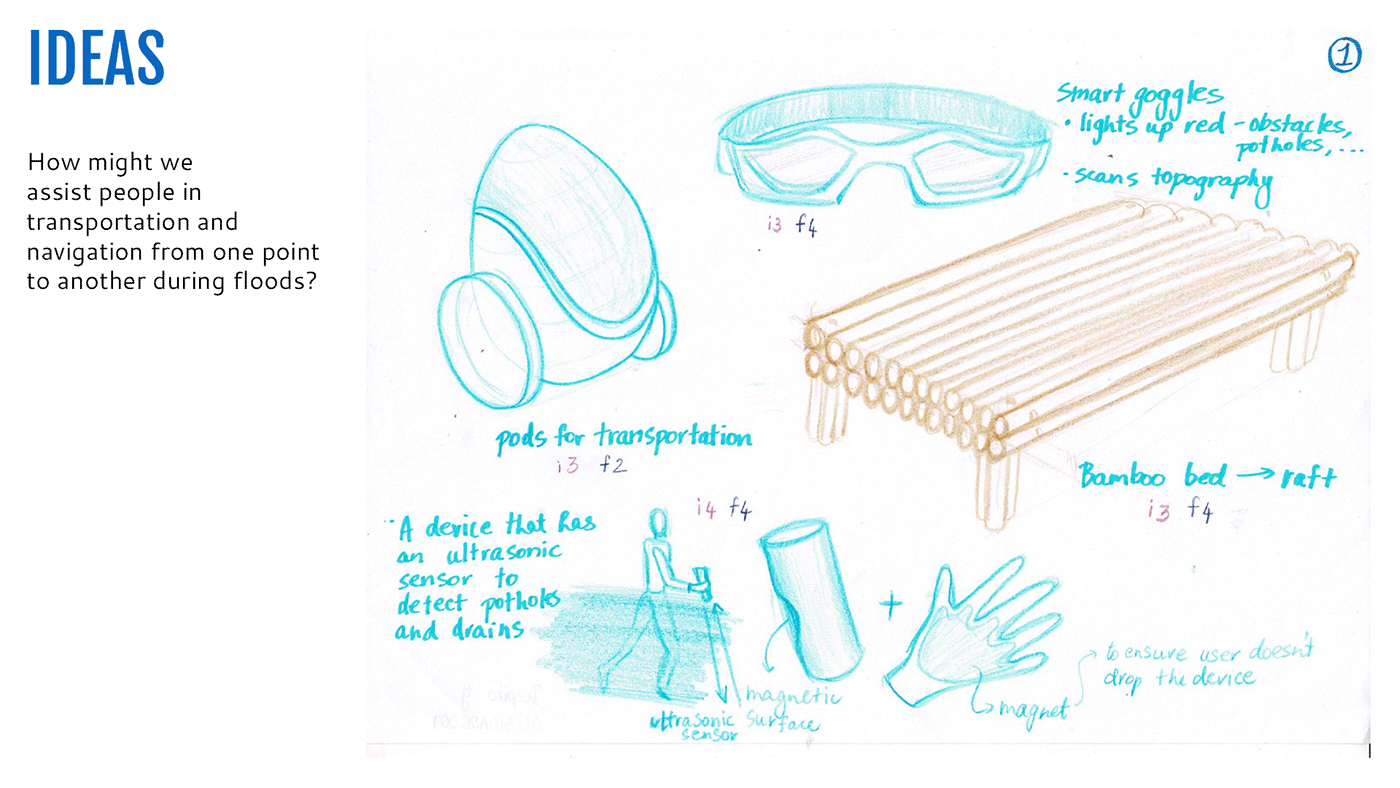 IDEAS
How might we
assist people in
transportation and
navigation from one point
to another during floods?
1
Smart goggles
• lights up red - obstacles,
potholes, ...
- scans topography
i3 f4
pods for transportation
i3 f2
Bamboo bed → raft
i3 f4
i4 f4
· A device that has
an ultrasonic
sensor to
detect potholes
and drains
ultrasonic
sensor
magnetic
surface
+
magnet
to ensure user doesn't
drop the device